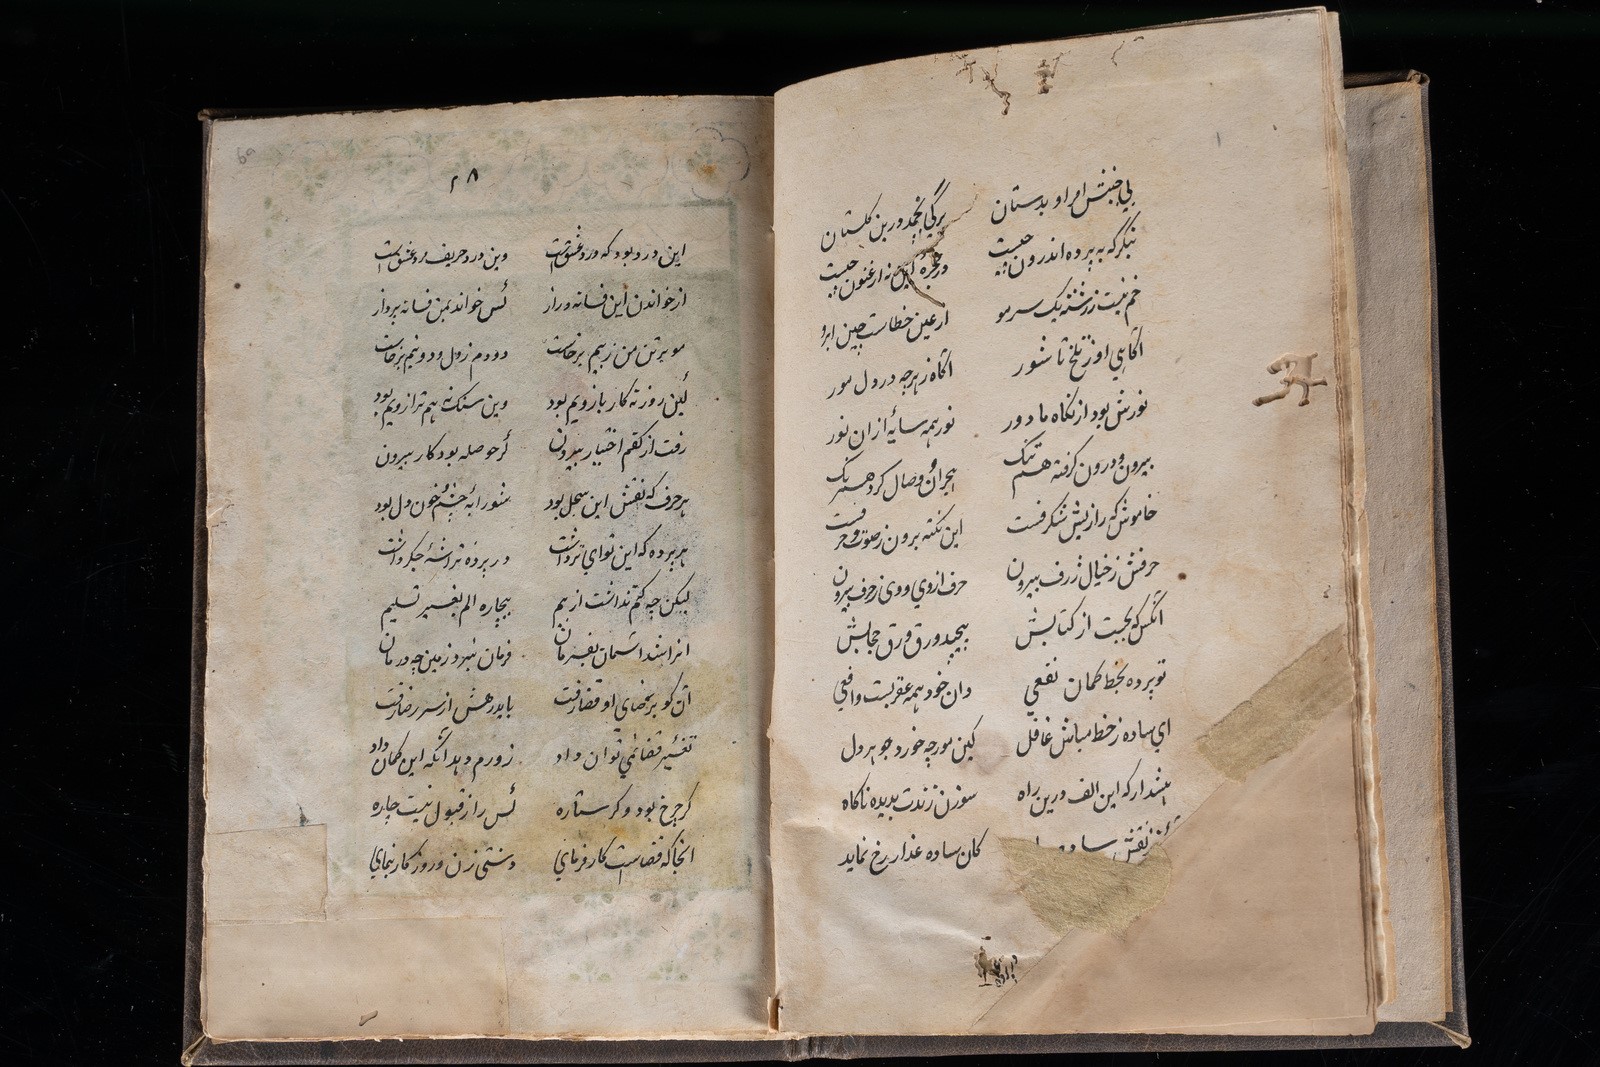 بی جنبش امر او بدستان برگی نجمد درین گلستان
بنگر که به پرده اندرون چیست در حجره این نه ارغنون چیست
خم نیست ز رشته یک سر مو از عین خطاست چین ابرو
آگاهی او ز تلخ تا شور آگاه ز هرچه در دل مور
نورش بود از نگاه ما دور نور همه سایهٔ ازان نور
بیرون و درون گرفته هم تنگ هجران و وصال کرده همرنگ
خاموش که رازیش شگرفست این نکته برون ز صوت و حرفست
حرفش ز خیال ژرف بیرون حرف ازوی و وی ز حرف بیرون
آنکس که بجست از کتابش پیچید ورق ورق حجابش
تو پرده بخط گمان نقعی دان خود همه عقربست و افعی
ای ساده ز خط مباش غافل کین مورچه خورد جوهر دل
هشدار که این الف درین راه سوزن زندت بدیده ناگاه
نقش ساده کان ساده عذار رخ نماید
۲۸
69
این درد بود که درد عشق است وین درد حریف مرد عشق است
از خواندن این فسانه وراز پس خواند بمن فسانه پرداز
مو بر تن من ز بیم برخاست دودم ز دل دو نیم برخاست
لیکن روزنه کار بازویم بود وین سنک نه هم ترازویم بود
رفت از کفم اختیار بیرون گر حوصله بود کار بیرون
هر حرف که نقش این سجل بود شورابه چشم خون دل بود
هر پرده که این نوای تر داشت در پرده تراشهٔ جگر داشت
لیکن چه کنم نداشت از بیم بیچاره الم بغیر تسلیم
انرا شد آسمان بفرمان فرمان نبرد زمین چه درمان
آن کو برضای او قضا رفت باید رهش از سر رضا رفت
تغییر قضا نمی توان داد زورم دهد آنکه این کمان داد
گر چرخ بود و گر ستاره کس را ز قبول نیست چاره
آنجا که قضاست کار فرمای دستی زن و روز کار بنمای